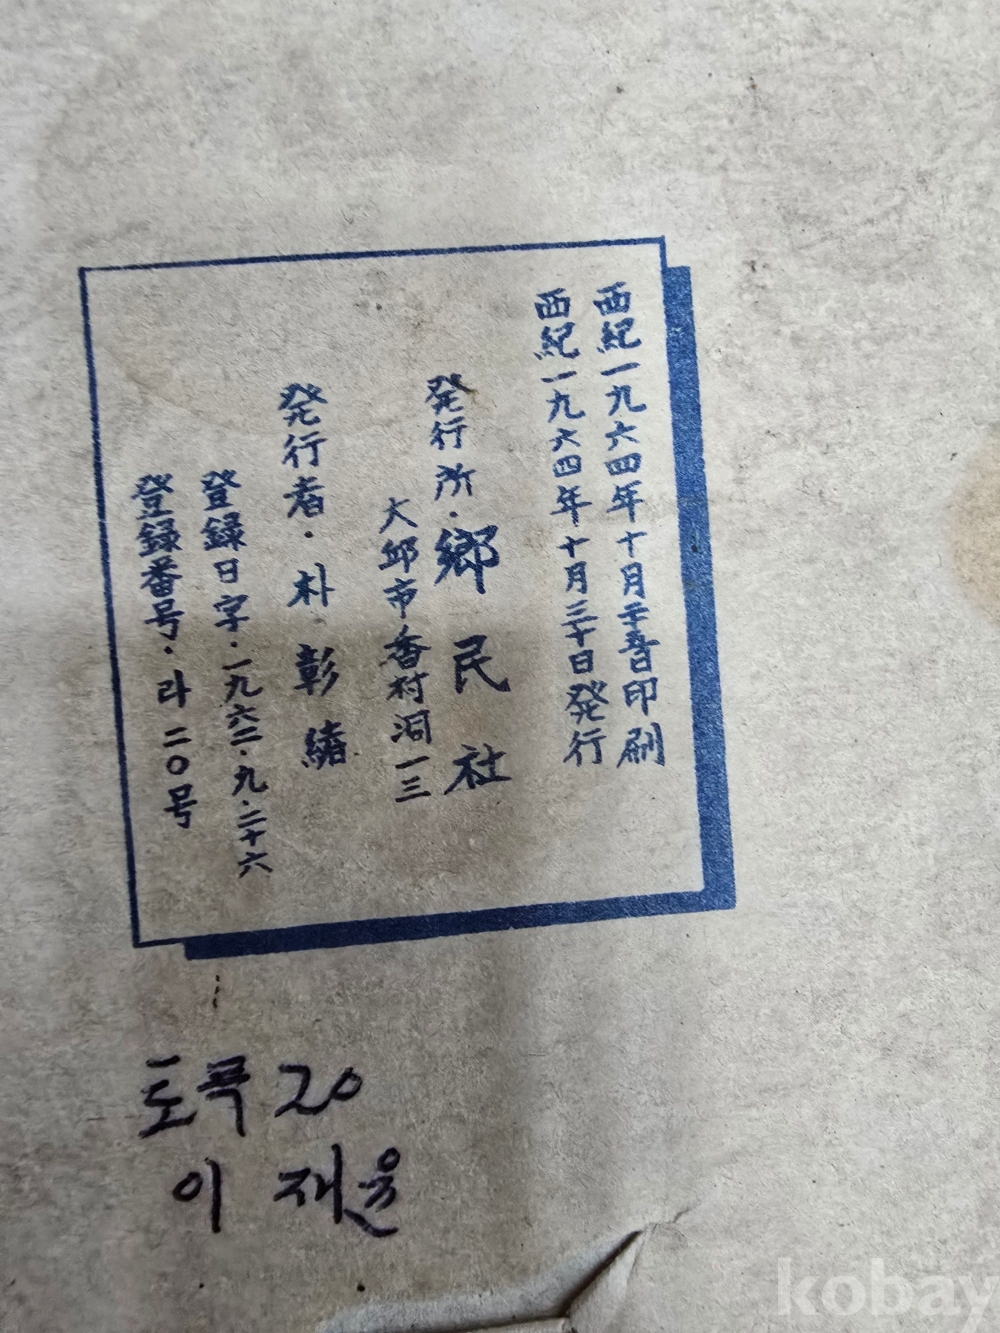 西紀一九六四年十月二十五日印刷
西紀一九六四年十月三十日発行
発行所・鄕民社
大邱市香村洞一三
発行者・朴彰緖
登録日字・一九六二・九・二十六
登録番号・라二○号
토폭 20
이재윤
kobay